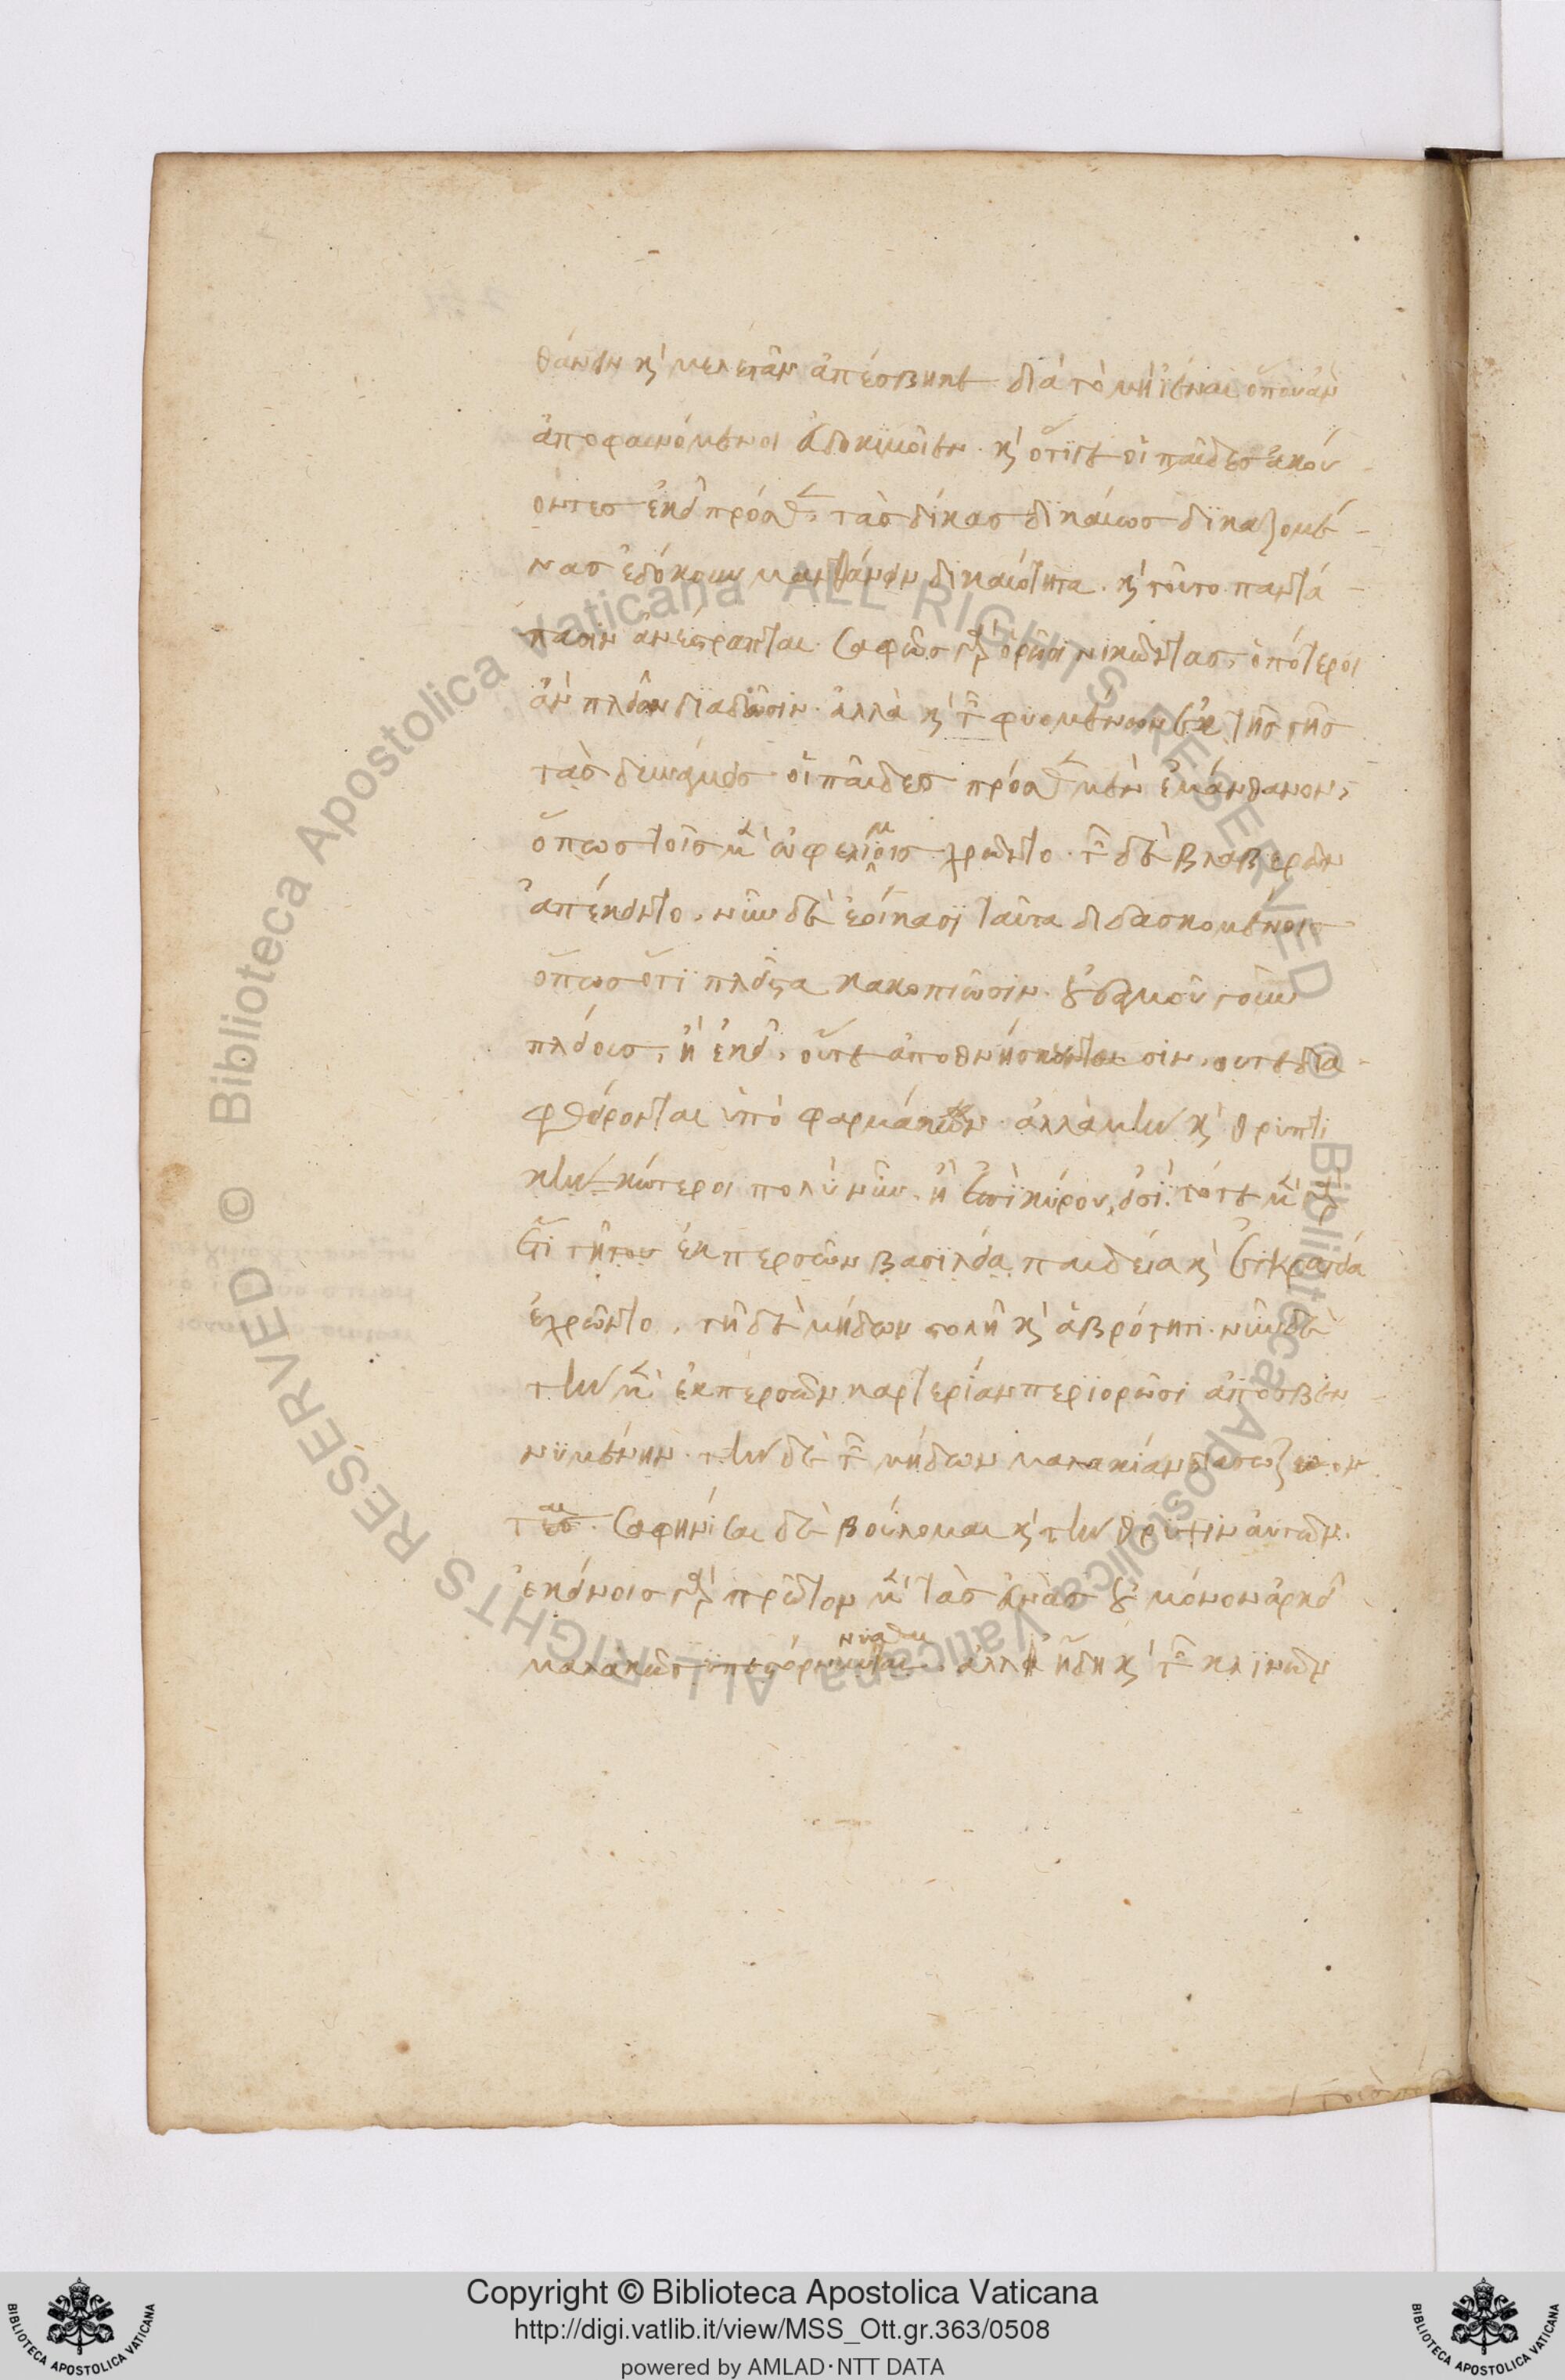 θάνειν κ̀ μελετᾶν ἀπέσβηκε διὰ τὸ μὴ ἰέναι ὅπου ἂν
ἀποφαινόμενοι εὐδοκιμοῖεν. κ̀ ὅτι γε οἱ παῖδες ἀκού
οντες ἐκεῖ πρόσθεν τὰς δίκας δικαίως δικαζομέ-
νας ἐδόκουν μανθάνειν δικαιότητα. κ̀ τοῦτο παντά-
πασιν ἀνέστραπται. σαφῶς γὰρ ὁρῶσι νικῶντας, ὁπότεροι
ἂν πλεῖον διαδῶσιν. ἀλλὰ κ̀ τῶν φυομένων ἐκ τῆς γῆς
τὰς δυνάμεις οἱ παῖδες πρόσθεν μὲν ἐμάνθανον,
ὅπως τοῖς μὲν ὠφελίμοις χρῶντο. τῶν δὲ βλαβερῶν
ἀπέχοιντο. νῦν δὲ ἐοίκασι ταῦτα διδασκομένοις
ὅπως ὅτι πλεῖστα κακοποιῶσιν. οὐδαμοῦ γοῦν
πλείους, ἢ ἐκεῖ, οὔτε ἀποθνήσκουσιν. οὔτε δια-
φθείρονται ὑπὸ φαρμάκων. ἀλλὰ μὴν κ̀ θρυπτι
κώτεροι πολὺ νῦν, ἢ ἐπὶ κύρου, εἰσί. τότε μὲν γὰρ
ἔτι τῇ τοῦ ἐκ περσῶν βασιλέα παιδεία κ̀ ἐγκρατεία
ἐχρῶντο. τῇ δὲ μήδων στολῇ κ̀ ἁβρότητι. νῦν δὲ
τὴν μὲν ἐκ περσῶν καρτερίαν περιορῶσι ἀποσβεν
νυμένην. τὴν δὲ τῶν μήδων μαλακίαν διασώζον
ται. σαφηνίσαι δὲ βούλομαι κ̀ τὴν θρύψιν αὐτῶν.
ἐκείνοις γὰρ πρῶτον μὲν τὰς εὐνὰς οὐ μόνον ἀρκεῖ
μαλακῶς ὑποστόρνυσθαι. ἀλλ' ἤδη κ̀ τῶν κλινῶν
Copyright © Biblioteca Apostolica Vaticana
http://digi.vatlib.it/view/MSS_Ott.gr.363/0508
powered by AMLAD·NTT DATA